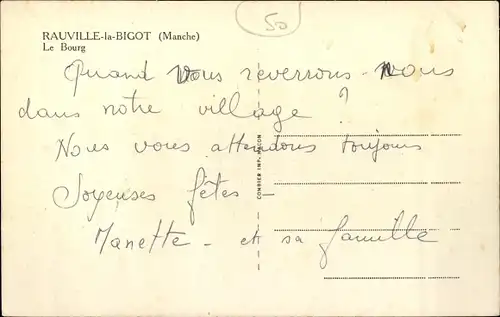 50
RAUVILLE-la-BIGOT (Manche)
Le Bourg
Quand vous reverrons-nous
dans notre village ?
Nous vous attendons toujours
Joyeuses fêtes -
Manette - et sa famille
COMBIER IMP. MACON